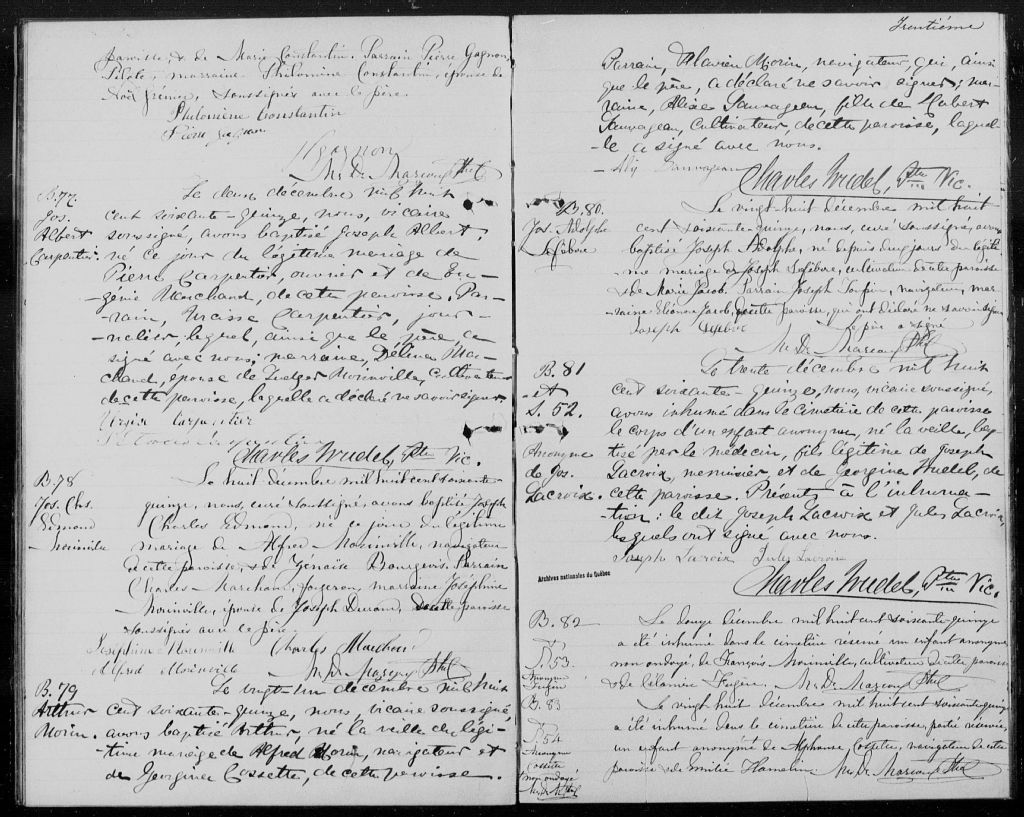 paroisse, & de Marie Constantin. Parrain Pierre Gagnon,
Pilote; marraine Philomine Constantin, épouse de
Noël soussignés avec le père.
Philomine Constantin
Pierre Gagnon
Gagnon
B. 77.
Jos.
Albert
Carpentier.
Le deux décembre mil huit
cent soixante-quinze, nous, vicaire
soussigné, avons baptisé Joseph Albert,
né ce jour du légitime mariage de
Pierre Carpentier, ouvrier et de Eu-
-génie Marchand, de cette paroisse. Par-
-rain, Narcisse Carpentier, jour-
-nalier, lequel, ainsi que le père, a
signé avec nous; marraine, Délina Mar-
chand, épouse de Ludger Morinville, cultivateur
de cette paroisse, laquelle a déclaré ne savoir signer.
Charles Trudel, Ptre Vic.
B. 78
Jos. Chs.
Edmond
Morinville
Le huit décembre mil huit cent soixante
quinze, nous, curé soussigné, avons baptisé Joseph
Charles Edmond, né ce jour du légitime
mariage de Alfred Morinville, navigateur
de cette paroisse, & de Bourgeois. Parrain
Charles Marchand, forgeron, marraine Joséphine
Morinville, épouse de Joseph Durand, de cette paroisse
soussignés avec le père.
Joséphine Morinville Charles Marchand
Alfred Morinville
B. 79
Arthur
Morin.
Le vingt-un décembre mil huit
cent soixante-quinze, nous, vicaire soussigné,
avons baptisé Arthur, né la veille du légi-
-time mariage de Alfred Morin, navigateur et
de Georgina Cossette, de cette paroisse.
Trentième
Parrain, Flavien Morin, navigateur, qui, ainsi
que le père, a déclaré ne savoir signer; mar-
raine, Alixe Sauvageau, fille de Hubert
Sauvageau, cultivateur, de cette paroisse, laquel-
-le a signé avec nous.
Sauvageau
Charles Trudel, Ptre Vic.
B. 80.
Jos. Adolphe
Lefebvre
Le vingt-huit décembre mil huit
cent soixante-quinze, nous, curé soussigné, avons
baptisé Joseph Adolphe, né depuis deux jours du légiti-
me mariage de Joseph Lefebvre, cultivateur de cette paroisse
& de Marie Jacob. Parrain Joseph navigateur, mar-
raine Eléonore Jacob, de cette paroisse, qui ont déclaré ne savoir signer
Le père a signé
Joseph Lefebvre
B. 81
et
S. 52.
Anonyme
de Jos.
Lacroix.
Le trente décembre mil huit
cent soixante-quinze, nous, vicaire soussigné,
avons inhumé dans le cimetière de cette paroisse
le corps d'un enfant anonyme, né la veille, bap-
tisé par le médecin, fils légitime de Joseph
Lacroix, menuisier et de Georgina Trudel, de
cette paroisse. Présents à l'inhuma-
-tion: le dit Joseph Lacroix et Jules Lacroix,
lesquels ont signé avec nous.
Joseph Lacroix Jules Lacroix
Archives nationales du Québec
Charles Trudel, Ptre Vic.
B. 82
S. 53.
Anonyme
Le douze décembre mil huit cent soixante-quinze
a été inhumé dans le cimetière réservé un enfant anonyme
non ondoyé, de François Morinville, cultivateur de cette paroisse
B. 83
S. 54
Anonyme
Cossette
non ondoyé
Le vingt huit décembre mil huit cent soixante-quinze
a été inhumé dans le cimetière de cette paroisse, partie réservée,
un enfant anonyme de Alphonse Cossette, navigateur de cette
paroisse & de Emilie Hamelin.